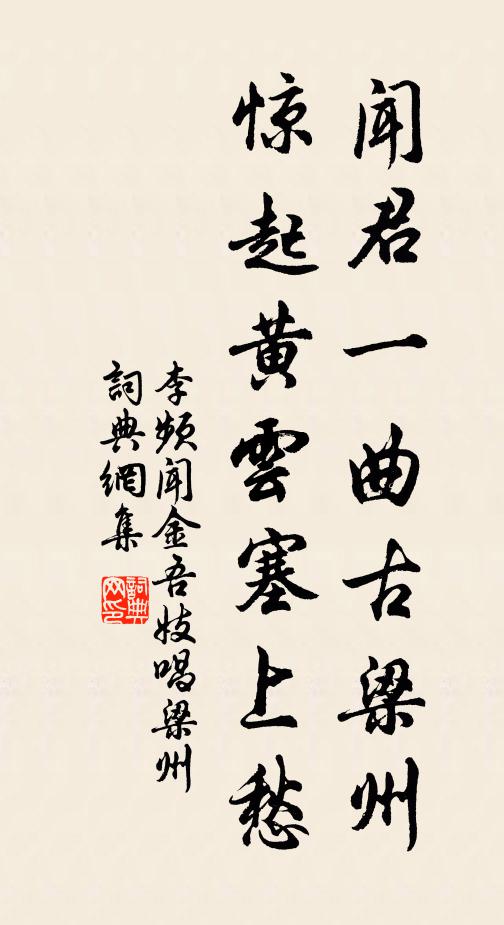 闻君一曲古梁州
惊起黄雲塞上愁
李频闻金吾妓唱梁州
詞典網集
詞典網印